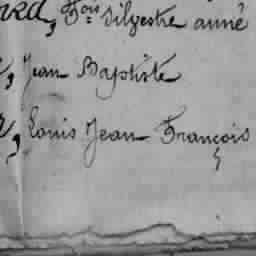 , Fois Silvestre anné
, Jean Baptiste
, Louis Jean François